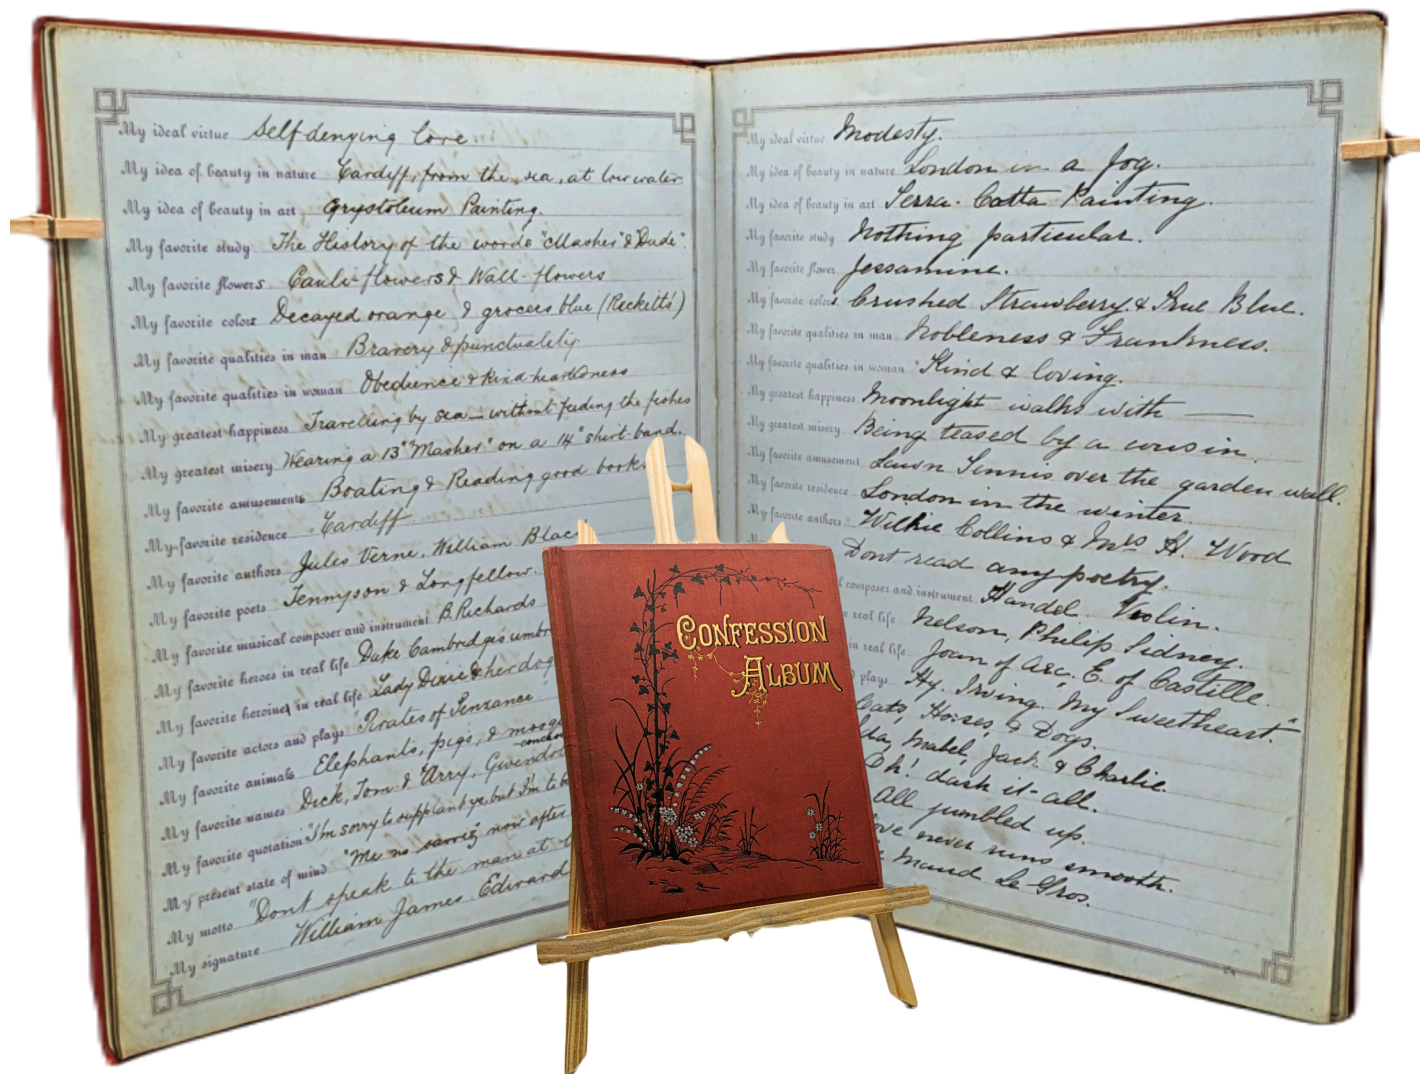 My ideal virtue Self denying love.
My idea of beauty in nature Cardiff, from the sea, at low water
My idea of beauty in art Crystoleum Painting.
My favorite study The History of the words "Masher" & "Dude".
My favorite flowers Cauli-flowers & Wall-flowers
My favorite colors Decayed orange & grocers blue (Recketts)
My favorite qualities in man Bravery & punctuality.
My favorite qualities in woman Obedience & kind heartedness
My greatest happiness Travelling by sea - without feeding the fishes
My greatest misery Wearing a 13" "Masher" on a 14" shirt-band.
My favorite amusements Boating & Reading good books
My favorite residence Cardiff
My favorite authors Jules Verne, William Blac
My favorite poets Tennyson & Longfellow.
My favorite musical composer and instrument B. Richards
My favorite heroes in real life Duke Cambridge's umbr
My favorite heroines in real life Lady Dixie & her dog
My favorite actors and plays "Pirates of Penzance
My favorite animals Elephants, pigs, &
My favorite names Dick, Tom & 'Arry,
My favorite quotation "I'm sorry to supplant ye, but I'm to b
My present state of mind "Me no savvy" now after
My motto "Dont speak to the man at
My signature William James Edward
CONFESSION
ALBUM
My ideal virtue Modesty.
My idea of beauty in nature London in a fog.
My idea of beauty in art Terra-Cotta Painting.
My favorite study Nothing particular.
My favorite flower Jessamine.
My favorite colors Crushed Strawberry & True Blue.
My favorite qualities in man Nobleness & Frankness.
My favorite qualities in woman Kind & loving.
My greatest happiness Moonlight walks with ——
My greatest misery Being teased by a cousin.
My favorite amusement Lawn Tennis over the garden wall.
My favorite residence London in the winter.
My favorite authors Wilkie Collins & Mrs H. Wood
Dont read any poetry.
l composer and instrument Handel. Violin.
in real life Nelson, Philip Sidney.
in real life Joan of Arc. E. of Castille.
plays Hy. Irving. "My Sweetheart."
Cats, Horses, & Dogs.
Mabel, Jack & Charlie
Oh! dash it all.
All jumbled up.
ove never runs smooth.
Maud Le Gros.